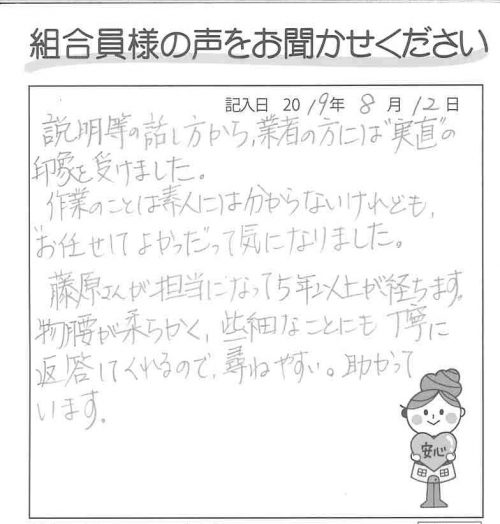 組合員様の声をお聞かせください
記入日 2019年 8月 12日
説明等の話し方から、業者の方には"実直"の
印象を受けました。
作業のことは素人には分からないけれども、
"お任せしてよかった"って気になりました。
藤原さんが担当になって5年以上が経ちます。
物腰が柔らかく、些細なことにも丁寧に
返答してくれるので、尋ねやすい。助かって
います。
安心